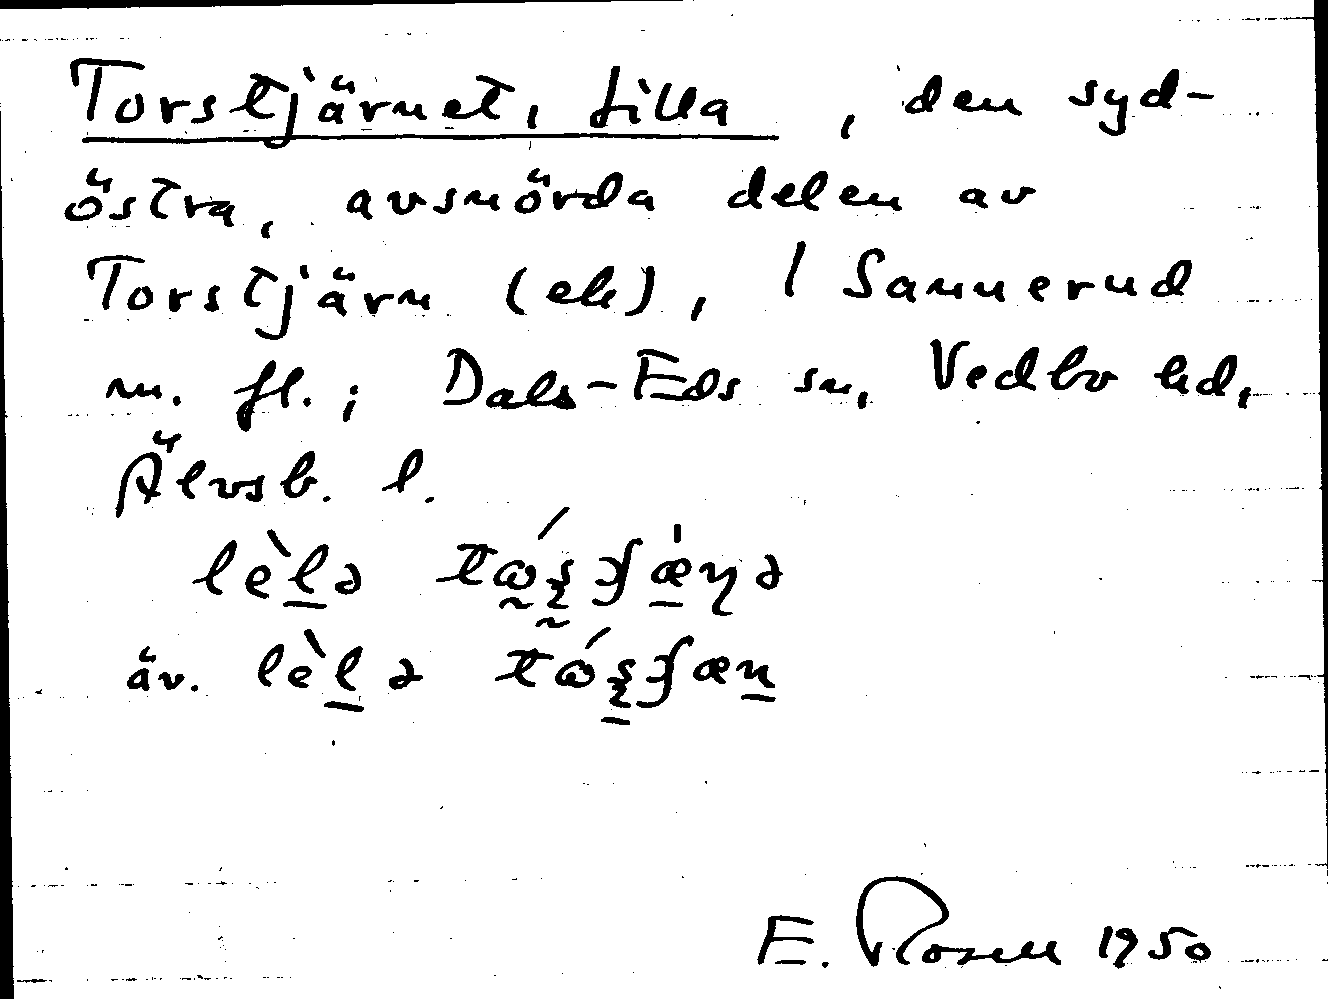 Torstjärnet, Lilla, den syd-
östra, avsnörda delen av
Torstjärn (ek), / Sannerud
m. fl.; Dals-Eds sn, Vedbo hd,
Älvsb. l.
lèlə
äv. lèlə
E. Rosell 1950